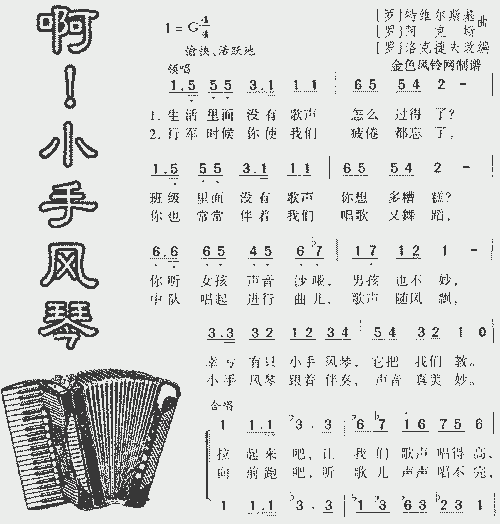 啊!小手风琴
1=G 4/4
愉快、活跃地
[罗]特维尔斯基 曲
[罗]阿克坊
[罗]洛克捷夫改编
金色风铃网制谱
领唱
1.5 55 3.1 11 | 65 54 2 - |
1.生活 里面 没有 歌声 怎么 过得 了?
2.行军 时候 你使 我们 疲倦 都忘 了,
1.5 55 3.1 11 | 65 54 2 - |
班级 里面 没有 歌声 你想 多糟 糕?
你也 常常 伴着 我们 唱歌 又舞 蹈,
6.6 65 45 6♭7 | 1 7 12 1 - |
你听 女孩 声音 沙哑, 男孩 也不 妙,
中队 唱起 进行 曲儿, 歌声 随风 飘,
3.3 32 12 34 | 54 32 1 0
幸亏 有只 小手 风琴, 它把 我们 教。
小手 风琴 跟着 伴奏, 声音 真美 妙。
合唱
1 1.1 ♭3 . 3 | ♭6 7 ♭16 75 6
拉 起来 吧, 让 我们 歌声 唱得 高,
向 前跑 吧, 听 歌儿 声声 唱不 完,
1 1.1 ♭3 . 3 | ♭1 ♭3 ♭63 ♭23 1